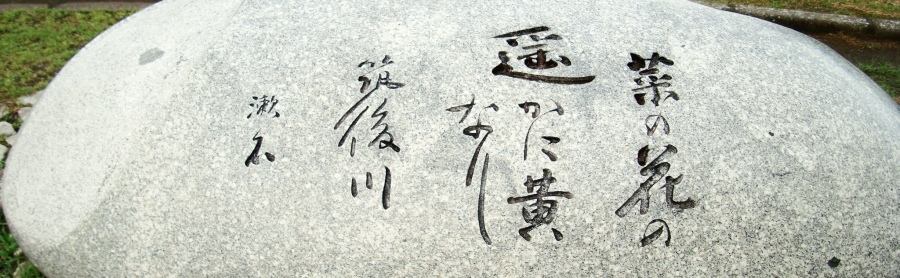 菜の花の
遥かに黄
なり
筑後川
漱石